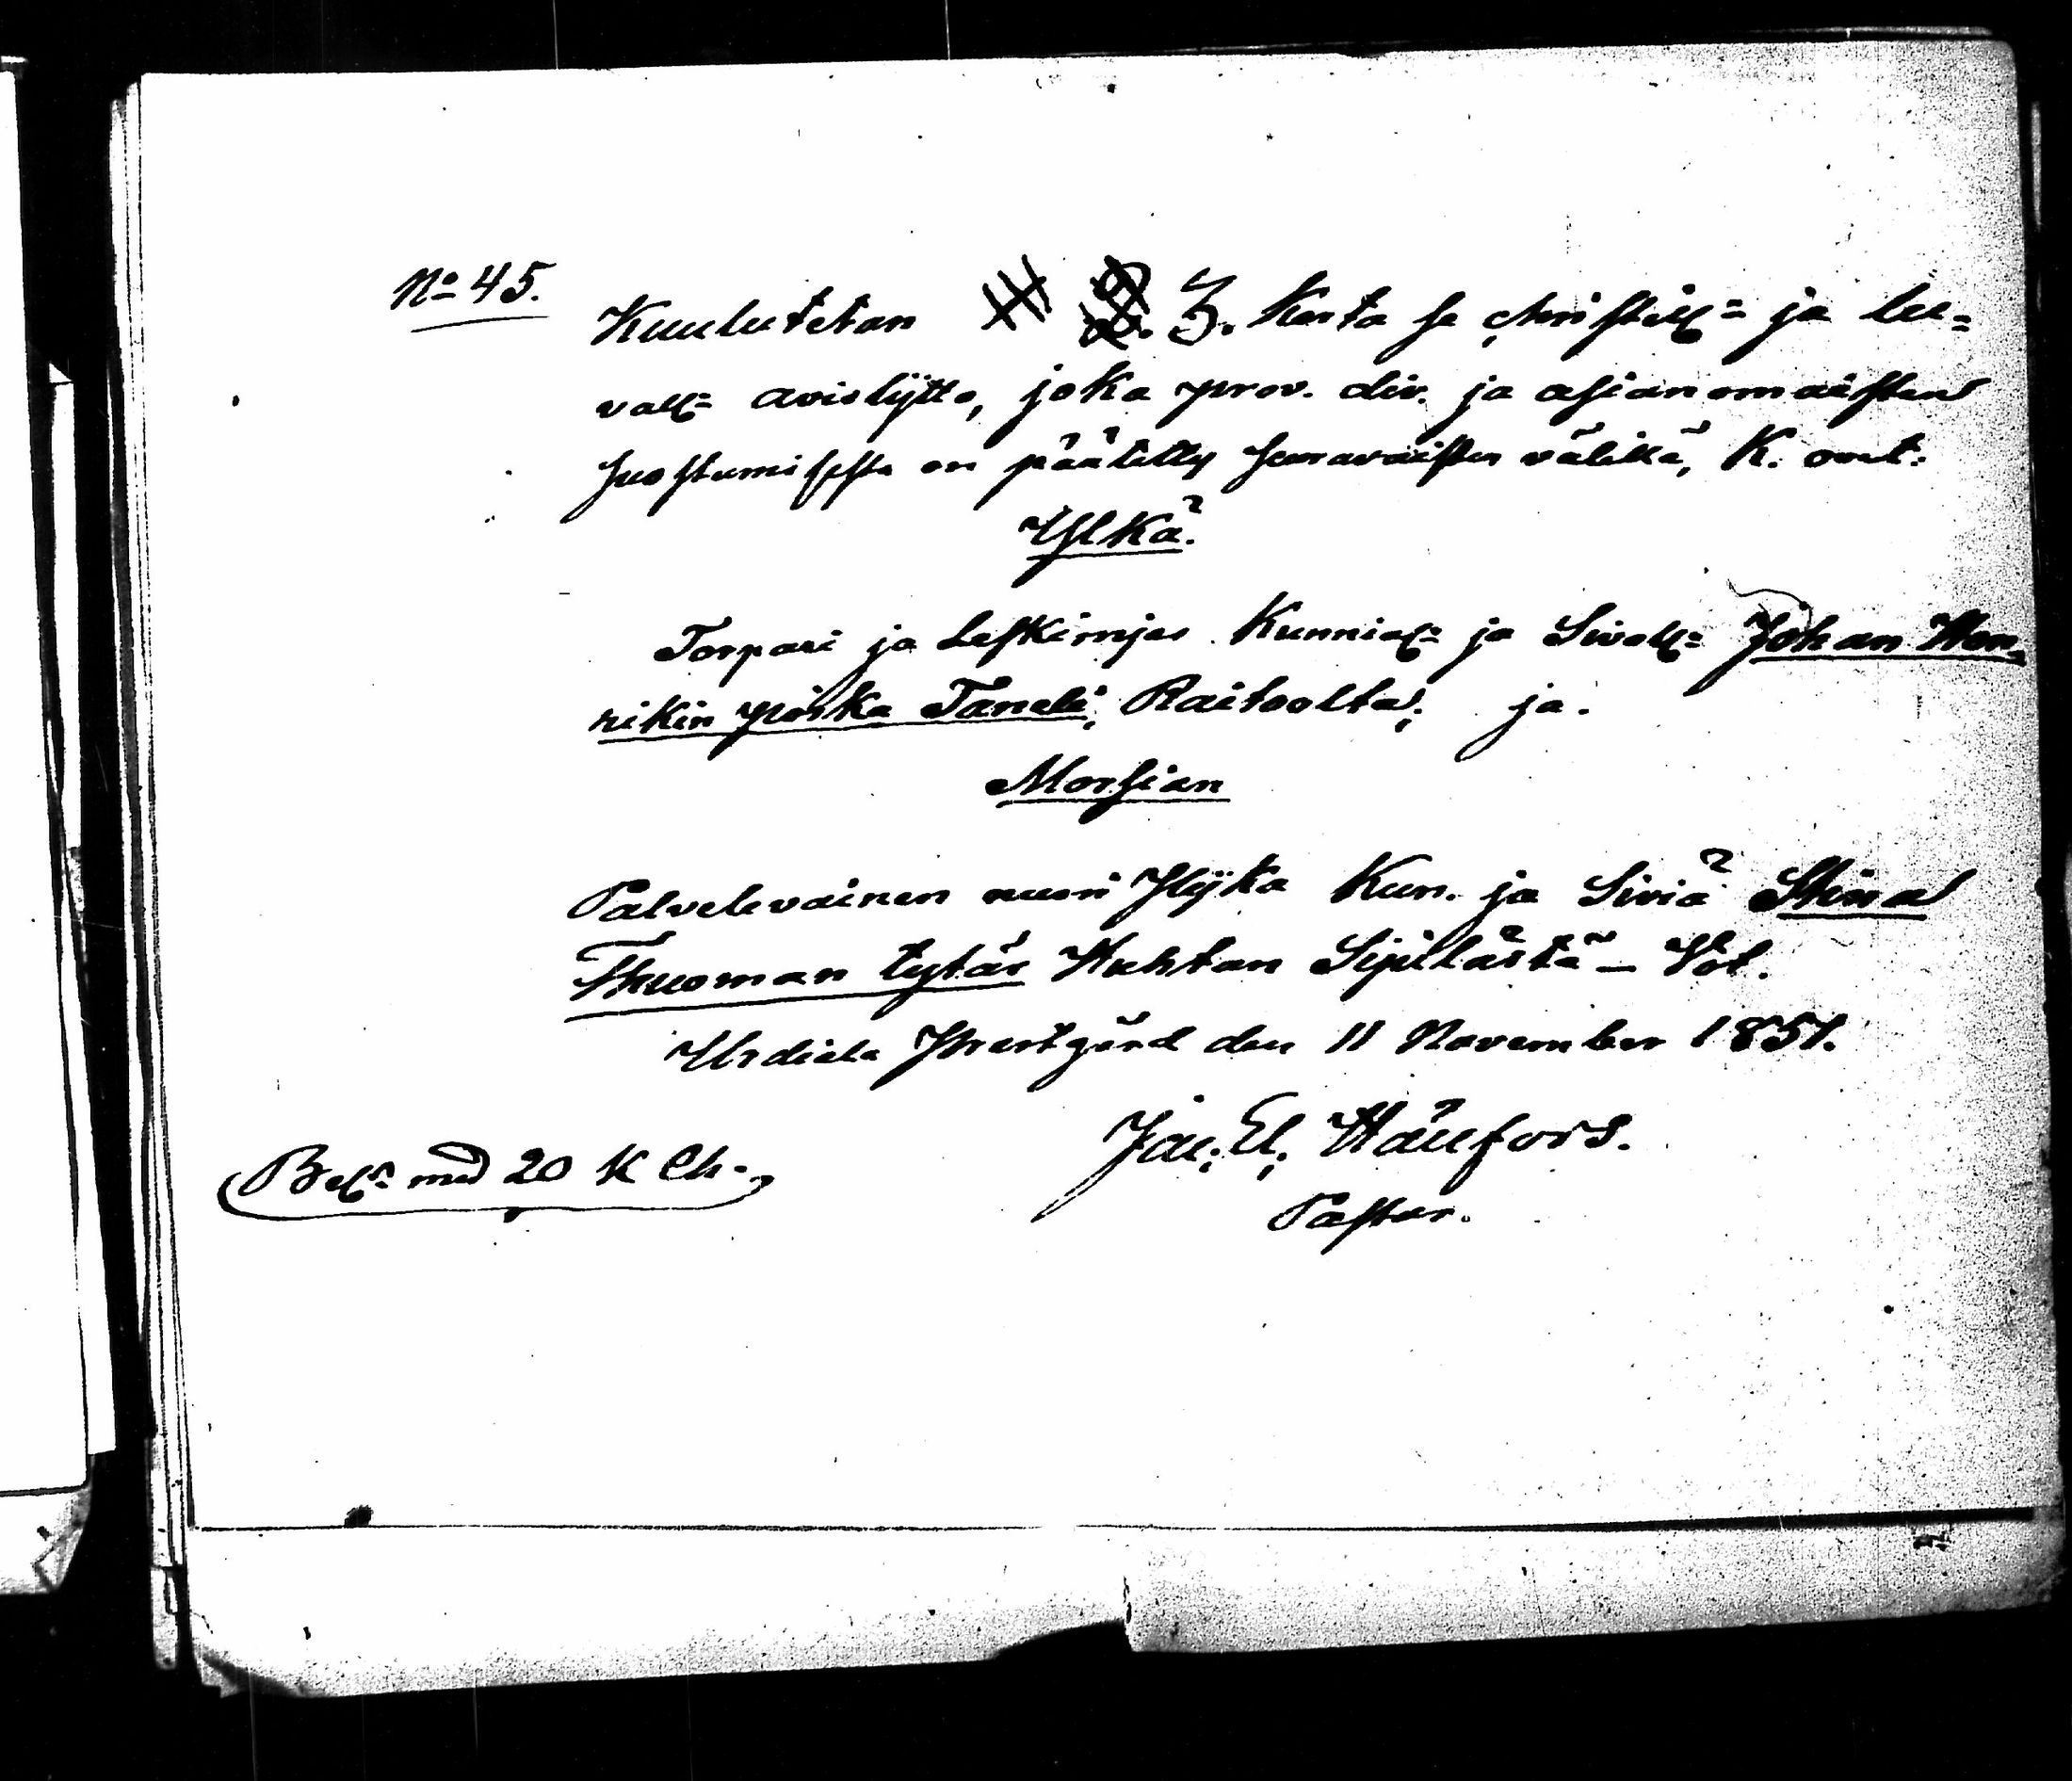 No 45.
Kuulutetan 3. Kerta se christil= ja lu=
vall= avioliјtto, joka prov. div. ja asianomaisten
suostumisesta on päätetty seuravaisten välillä, K. out:
Ylkä.
Torpari ja Leskimjes Kunnial= ja Sivell= Johan Hen=
rikin poika Taneli, Raitoolta; ja.
Morsian
Palvelevainen nuori Plijka Kun. ja Siviä Stina
Thuoman tytär Huhtan Sipilästä –
Urdiala Prestgård den 11 November 1851.
Jac. El. Hällfors.
Pastor.
Bel= med 20 K